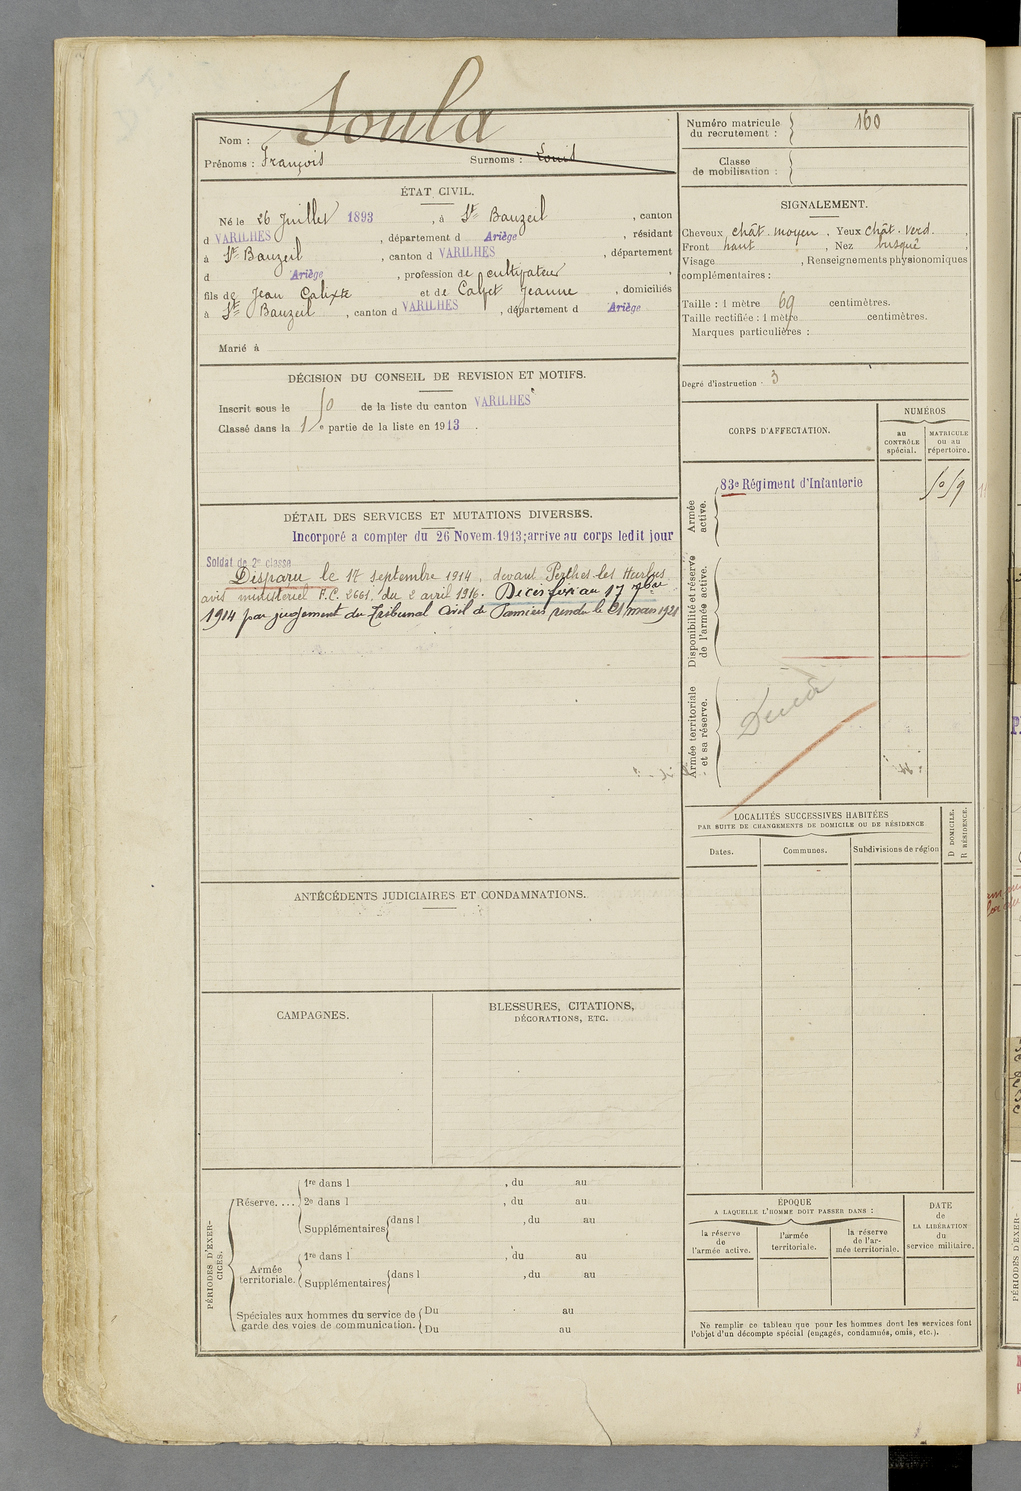 Soula
Nom :
Prénoms : François Surnoms : Louis
Numéro matricule du recrutement : 160
Classe de mobilisation :
ÉTAT CIVIL.
Né le 26 Juillet 1893, à St Bauzeil, canton
d VARILHES, département d Ariège, résidant
à St Bauzeil, canton d VARILHES, département
d Ariège, profession de cultivateur,
fils de Jean Calixte et de Calvet Jeanne, domiciliés
à St Bauzeil, canton d VARILHES, département d Ariège
Marié à
SIGNALEMENT.
Cheveux chât. moyen, Yeux chât. verd.,
Front haut, Nez busqué,
Visage , Renseignements physionomiques
complémentaires :
Taille : 1 mètre 69 centimètres.
Taille rectifiée : 1 mètre centimètres.
Marques particulières :
Degré d'instruction 3
DÉCISION DU CONSEIL DE REVISION ET MOTIFS.
Inscrit sous le de la liste du canton VARILHES
Classé dans la 1e partie de la liste en 1913.
CORPS D'AFFECTATION.
NUMÉROS
au CONTRÔLE spécial.
MATRICULE ou au répertoire.
Armée active.
83e Régiment d'Infanterie
Disponibilité et réserve de l'armée active.
Armée territoriale et sa réserve.
DÉTAIL DES SERVICES ET MUTATIONS DIVERSES.
Incorporé a compter du 26 Novem. 1913; arrive au corps ledit jour
Soldat de 2e classe
Disparu le 17 Septembre 1914, devant Perthes-les-Hurlus
avis ministériel F.C. 2661, du 2 avril 1916. Décès fixé au 17 7bre
1914 par jugement du Tribunal Civil de Pamiers rendu le 31 mars 1921
LOCALITÉS SUCCESSIVES HABITÉES
PAR SUITE DE CHANGEMENTS DE DOMICILE OU DE RÉSIDENCE
Dates.
Communes.
Subdivisions de région
D DOMICILE.
R RÉSIDENCE.
ANTÉCÉDENTS JUDICIAIRES ET CONDAMNATIONS.
CAMPAGNES.
BLESSURES, CITATIONS,
DÉCORATIONS, ETC.
PÉRIODES D'EXERCICES.
Réserve....
1re dans l , du au
2e dans l , du au
Supplémentaires dans l , du au
Armée territoriale.
1re dans l , du au
Supplémentaires dans l , du au
Spéciales aux hommes du service de
garde des voies de communication.
Du au
Du au
ÉPOQUE
A LAQUELLE L'HOMME DOIT PASSER DANS :
la réserve de l'armée active.
l'armée territoriale.
la réserve de l'armée territoriale.
DATE de LA LIBÉRATION du service militaire.
Ne remplir ce tableau que pour les hommes dont les services font
l'objet d'un décompte spécial (engagés, condamnés, omis, etc.).